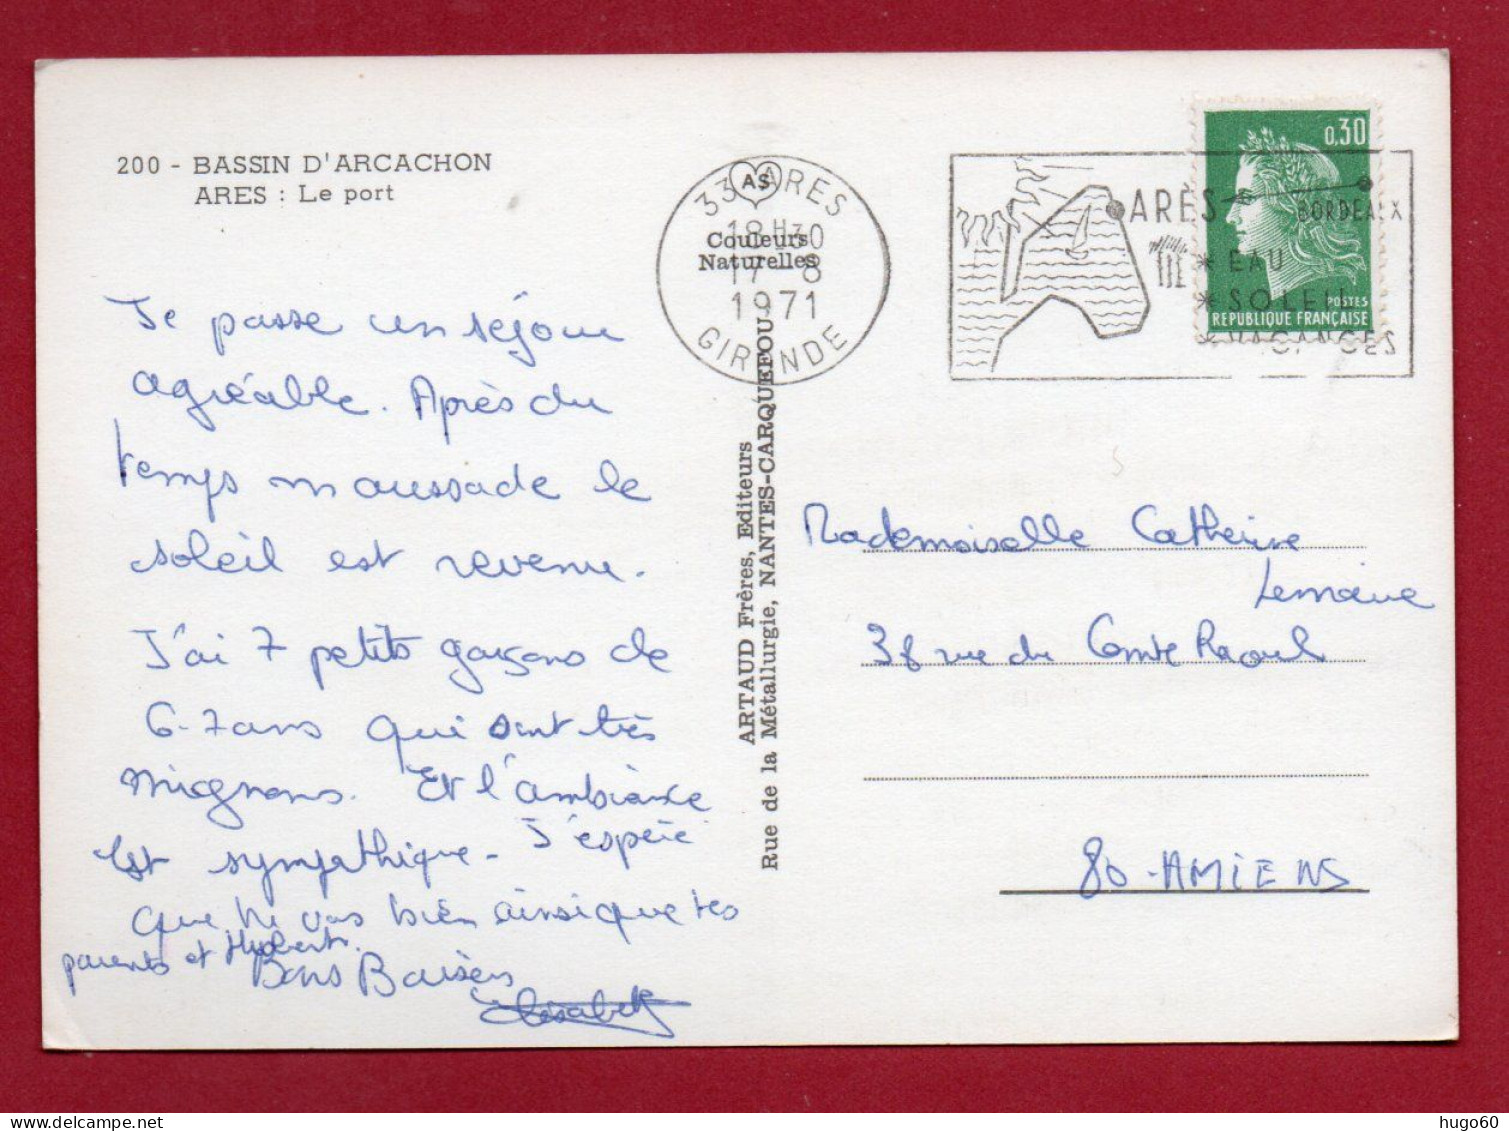 200 - BASSIN D'ARCACHON
ARES : Le port
Je passe un séjour
agréable. Après du
temps maussade le
soleil est revenu.
J'ai 7 petits garçons de
6-7 ans qui sont très
mignons. Et l'ambiance
est sympathique - J'espère
que tu vas bien ainsi que tes
parents et Hubert.
Bons Baisers
Elisabeth
AS
Couleurs
Naturelles
33 ARES
18H30
17-8
1971
GIRONDE
ARTAUD Frères, Editeurs
Rue de la Métallurgie, NANTES-CARQUEFOU
ARÈS
BORDEAUX
* EAU
* SOLEIL
* VACANCES
0,30
POSTES
REPUBLIQUE FRANÇAISE
Mademoiselle Catherine
Lemaire
38 rue du Comte Raoul
80 - AMIENS
hugo60